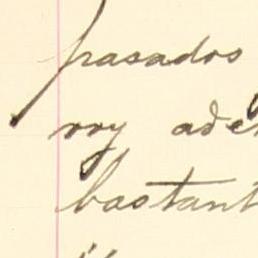 pasados
voy ade
bastant